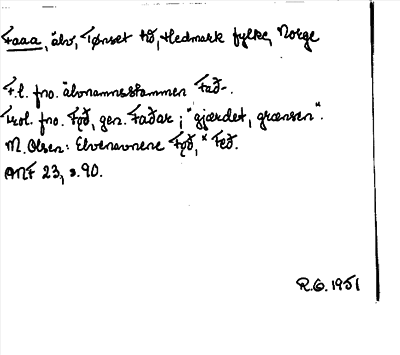 Faaa, älv, Tønset hd, Hedmark fylke, Norge
F.l. fno. älvnamnsstammen Fað-.
Trol. fno. Fǫð, gen. Faðar; "gjærdet, grænsen".
M. Olsen: Elvenavnene Fǫð, *Feð.
ANF 23, s. 90.
R.G. 1951